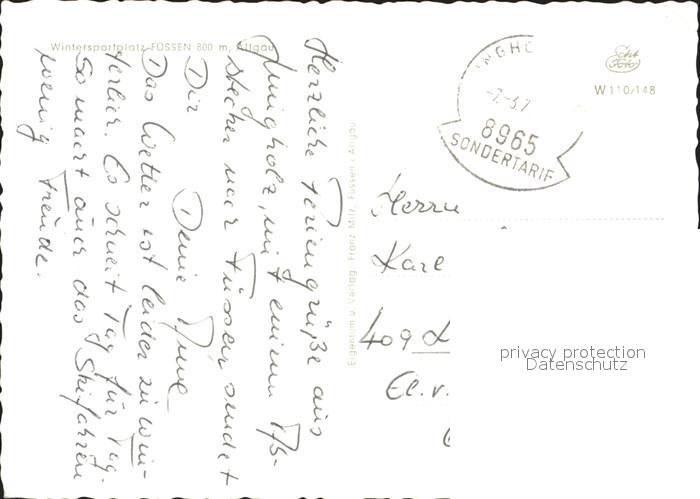 Wintersportplatz FÜSSEN 800 m, Allgäu
Herzliche Feriengrüße aus
Jungholz, mit einem Ab-
stecher nach Füssen sendet
Dir
Deine
Das Wetter ist leider zu win-
terlich. Es schneit Tag für Tag.
So macht auch das Skifahren
wenig Freude.
Eigentum u. Verlag Franz Milz, Füssen / Allgäu
NGHO
8965
SONDERTARIF
W 110/148
Herrn
Karl
409
privacy protection
Datenschutz